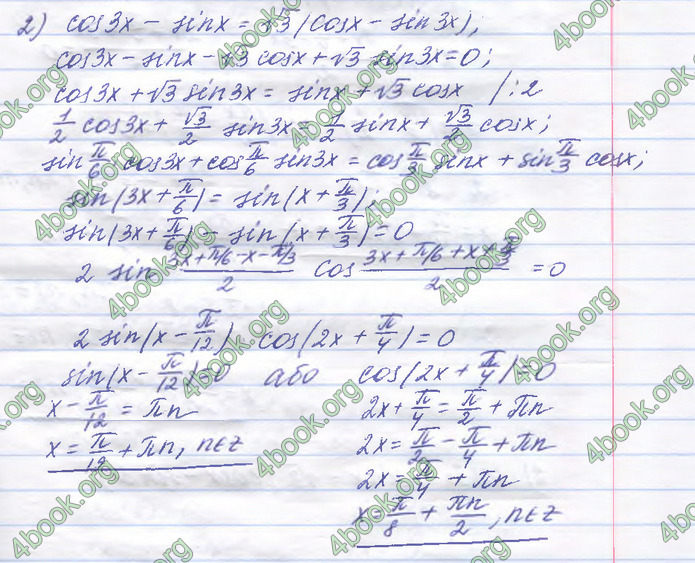 2) cos3x - sinx = √3(cosx - sin3x);
cos3x - sinx - √3 cosx + √3 sin3x = 0;
cos3x + √3 sin3x = sinx + √3 cosx /:2
1/2 cos3x + √3/2 sin3x = 1/2 sinx + √3/2 cosx;
sin π/6 cos3x + cos π/6 sin3x = cos π/3 sinx + sin π/3 cosx;
sin(3x + π/6) = sin(x + π/3);
sin(3x + π/6) - sin(x + π/3) = 0
2 sin (3x + π/6 - x - π/3)/2 cos (3x + π/6 + x + π/3)/2 = 0
2 sin(x - π/12) cos(2x + π/4) = 0
sin(x - π/12) = 0 або cos(2x + π/4) = 0
x - π/12 = πn
x = π/12 + πn, n∈Z
2x + π/4 = π/2 + πn
2x = π/2 - π/4 + πn
2x = π/4 + πn
x = π/8 + πn/2, n∈Z
4book.org